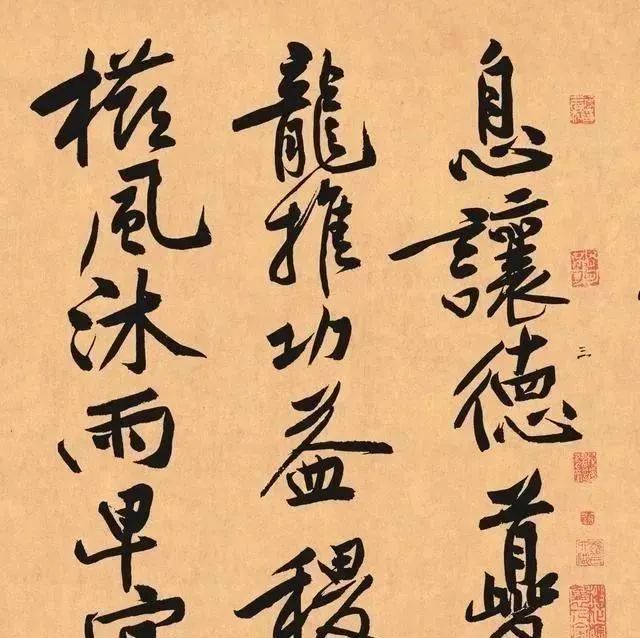 三
息讓德夔
龍推功益稷
櫛風沐雨早